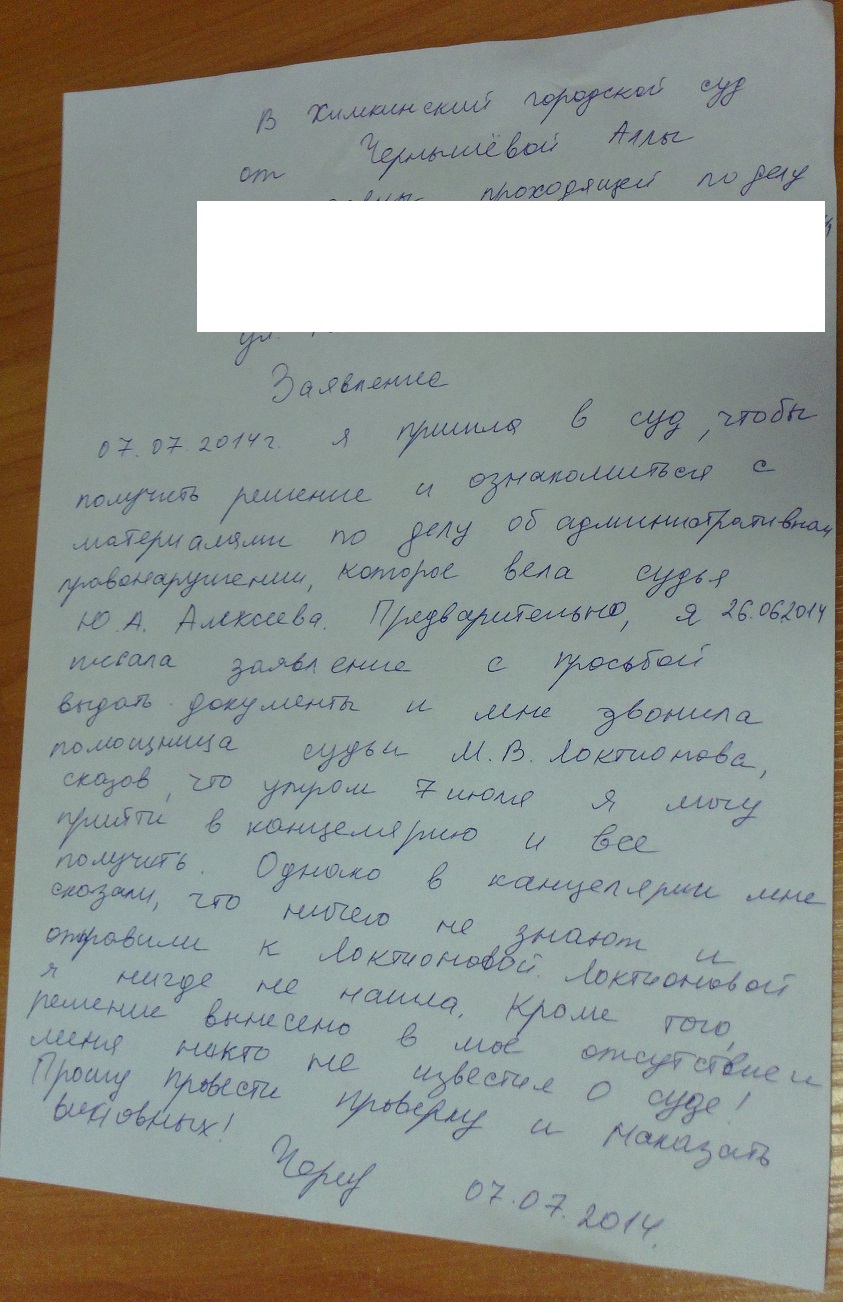 В Химкинский городской суд
от Чернышёвой Аллы
проходящей по делу
ул.
Заявление
07.07.2014г. я пришла в суд, чтобы
получить решение и ознакомиться с
материалами по делу об административном
правонарушении, которое вела судья
Ю.А. Алексеева. Предварительно, я 26.062014
писала заявление с просьбой
выдать документы и мне звонила
помощница судьи М.В. Локтионова,
сказав, что утром 7 июля я могу
прийти в канцелярию и все
получить. Однако в канцелярии мне
сказали, что ничего не знают и
отправили к Локтионовой. Локтионовой
я нигде не нашла. Кроме того,
решение вынесено в мое отсутствие и
меня никто не известил о суде!
Прошу провести проверку и наказать
виновных!
07.07.2014.